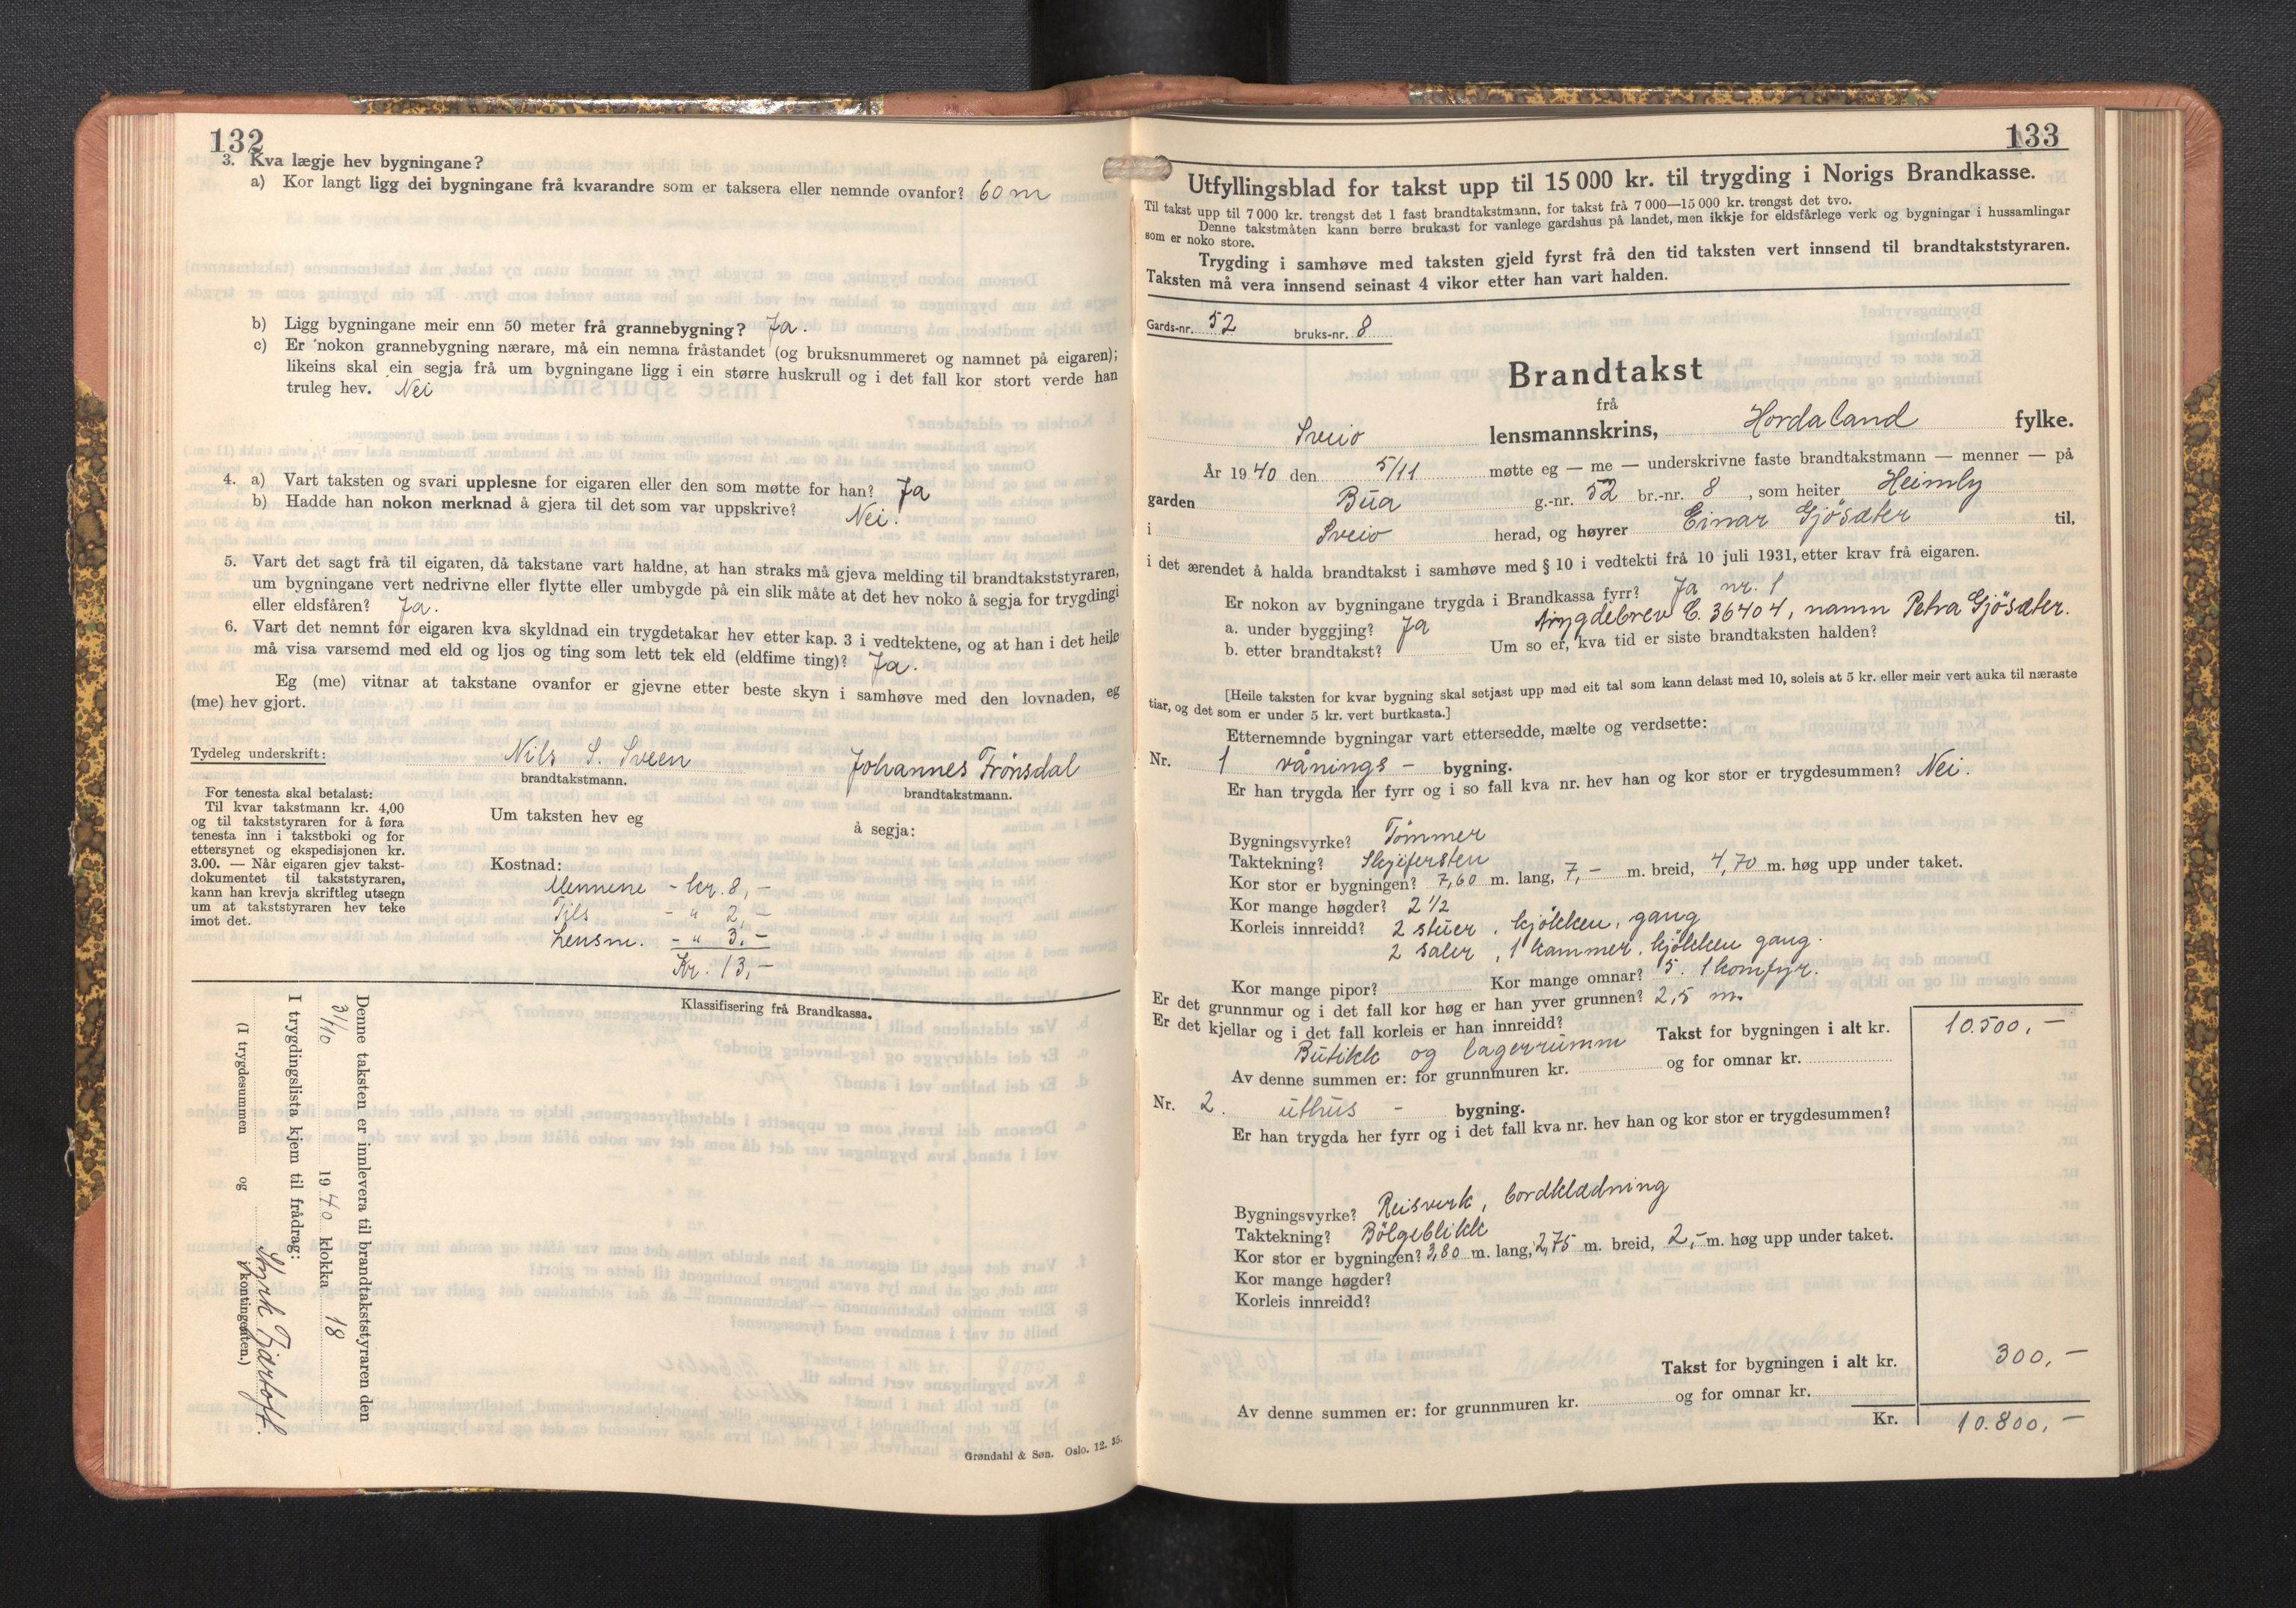 132
3. Kva lægje hev bygningane?
a) Kor langt ligg dei bygningane frå kvarandre som er taksera eller nemnde ovanfor? 60 m
b) Ligg bygningane meir enn 50 meter frå grannebygning? Ja.
c) Er nokon grannebygning nærare, må ein nemna fråstandet (og bruksnummeret og namnet på eigaren);
likeins skal ein segja frå um bygningane ligg i ein større huskrull og i det fall kor stort verde han
truleg hev. Nei
4. a) Vart taksten og svari upplesne for eigaren eller den som møtte for han? Ja
b) Hadde han nokon merknad å gjera til det som var uppskrive? Nei.
5. Vart det sagt frå til eigaren, då takstane vart haldne, at han straks må gjeva melding til brandtakststyraren,
um bygningane vert nedrivne eller flytte eller umbygde på ein slik måte at det hev noko å segja for trygdingi
eller eldsfåren? Ja.
6. Vart det nemnt for eigaren kva skyldnad ein trygdetakar hev etter kap. 3 i vedtektene, og at han i det heile
må visa varsemd med eld og ljos og ting som lett tek eld (eldfime ting)? Ja.
Eg (me) vitnar at takstane ovanfor er gjevne etter beste skyn i samhøve med den lovnaden, eg
(me) hev gjort.
Tydeleg underskrift: Nils S. Sveen Johannes Trönsdal
brandtakstmann. brandtakstmann.
For tenesta skal betalast:
Til kvar takstmann kr. 4,00
og til takststyraren for å føra
tenesta inn i takstboki og for
ettersynet og ekspedisjonen kr.
3.00. — Når eigaren gjev takst-
dokumentet til takststyraren,
kann han krevja skriftleg utsegn
um at takststyraren hev teke
imot det.
Um taksten hev eg å segja:
Kostnad:
Mennene - kr. 8,-
Tils - " 2,-
Lensm. - " 3.-
Kr. 13,-
Klassifisering frå Brandkassa.
Denne taksten er innlevera til brandtakststyraren den
31/10 1940 klokka 18
I trygdingslista kjem til frådrag:
(I trygdesummen og i kontingenten.)
Grøndahl & Søn. Oslo. 12. 35.
133
Utfyllingsblad for takst upp til 15 000 kr. til trygding i Norigs Brandkasse.
Til takst upp til 7 000 kr. trengst det 1 fast brandtakstmann, for takst frå 7 000—15 000 kr. trengst det tvo.
Denne takstmåten kann berre brukast for vanlege gardshus på landet, men ikkje for eldsfårlege verk og bygningar i hussamlingar
som er noko store.
Trygding i samhøve med taksten gjeld fyrst frå den tid taksten vert innsend til brandtakststyraren.
Taksten må vera innsend seinast 4 vikor etter han vart halden.
Gards-nr. 52 bruks-nr. 8
Brandtakst
frå
Sveio lensmannskrins, Hordaland fylke.
År 1940 den 5/11 møtte eg — me — underskrivne faste brandtakstmann — menner — på
garden Bua g.-nr. 52 br.-nr. 8, som heiter Heimly
i Sveio herad, og høyrer Einar Gjösæter til,
i det ærendet å halda brandtakst i samhøve med § 10 i vedtekti frå 10 juli 1931, etter krav frå eigaren.
Er nokon av bygningane trygda i Brandkassa fyrr? Ja nr. 1
a. under byggjing? Ja Trygdebrev C. 36404, namn Petra Gjösæter.
b. etter brandtakst? Um so er, kva tid er siste brandtaksten halden?
[Heile taksten for kvar bygning skal setjast upp med eit tal som kann delast med 10, soleis at 5 kr. eller meir vert auka til næraste
tiar, og det som er under 5 kr. vert burtkasta.]
Etternemnde bygningar vart ettersedde, mælte og verdsette:
Nr. 1 vånings - bygning.
Er han trygda her fyrr og i so fall kva nr. hev han og kor stor er trygdesummen? Nei.
Bygningsvyrke? Tömmer
Taktekning? Skifersten
Kor stor er bygningen? 7,60 m. lang, 7,- m. breid, 4,70 m. høg upp under taket.
Kor mange høgder? 2 1/2
Korleis innreidd? 2 stuer, kjökken, gang
2 saler, 1 kammer, kjökken gang.
Kor mange pipor? Kor mange omnar? 5. 1 komfyr.
Er det grunnmur og i det fall kor høg er han yver grunnen? 2,5 m.
Er det kjellar og i det fall korleis er han innreidd? Takst for bygningen i alt kr. 10.500,-
Butikk og lagerrumm og for omnar kr.
Av denne summen er: for grunnmuren kr.
Nr. 2. uthus - bygning.
Er han trygda her fyrr og i det fall kva nr. hev han og kor stor er trygdesummen?
Bygningsvyrke? Reisverk, bordklædning
Taktekning? Bölgeblikk
Kor stor er bygningen? 3,80 m. lang, 2,75 m. breid, 2,- m. høg upp under taket.
Kor mange høgder?
Korleis innreidd?
Takst for bygningen i alt kr. 300,-
Av denne summen er: for grunnmuren kr. og for omnar kr.
Kr. 10.800,-